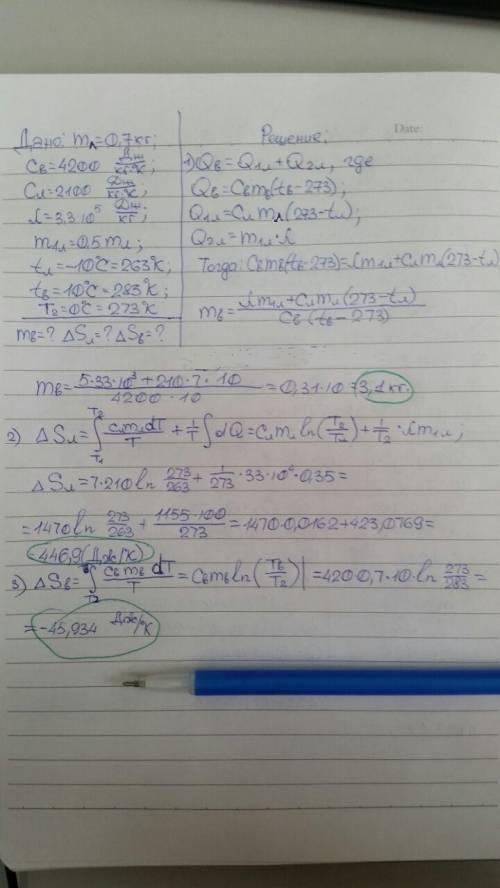 Дано: mл=0,7кг;
Cв=4200 Дж/кг·К
Cл=2100 Дж/кг·К;
λ=3.3·10⁵ Дж/кг;
m1л=0,5mл;
tл=-10°C=263°К;
tв=10°C=283°К;
T2=0°C=273°К
mв=? ΔSл=? ΔSв=?
Решение:
Date:
1) Qв=Q1л+Q2л, где
Qв=Cвmв(tв-273);
Q1л=Cлmл(273-tл);
Q2л=m1л·λ
Тогда: Cвmв(tв-273)=λm1л+Cлmл(273-tл)
mв=λm1л+Cлmл(273-tл)/Cв(tв-273)
2) ΔSл=∫T1T2 CлmлdT/T+1/T∫dQ=Cлmл ln(T2/Tл)+1/T2·λm1л;
ΔSл=7·210ln 273/263+1/273·33·10⁴·0,35=
=1470ln 273/263+1155·100/273=1470·0,0162+423,0769=
=446,9(Дж/К)
3) ΔSв=∫ CвmвdT/T=Cвmвln(Tв/T2)|=4200,7·10·ln 273/283=
=-45,934 Дж/К